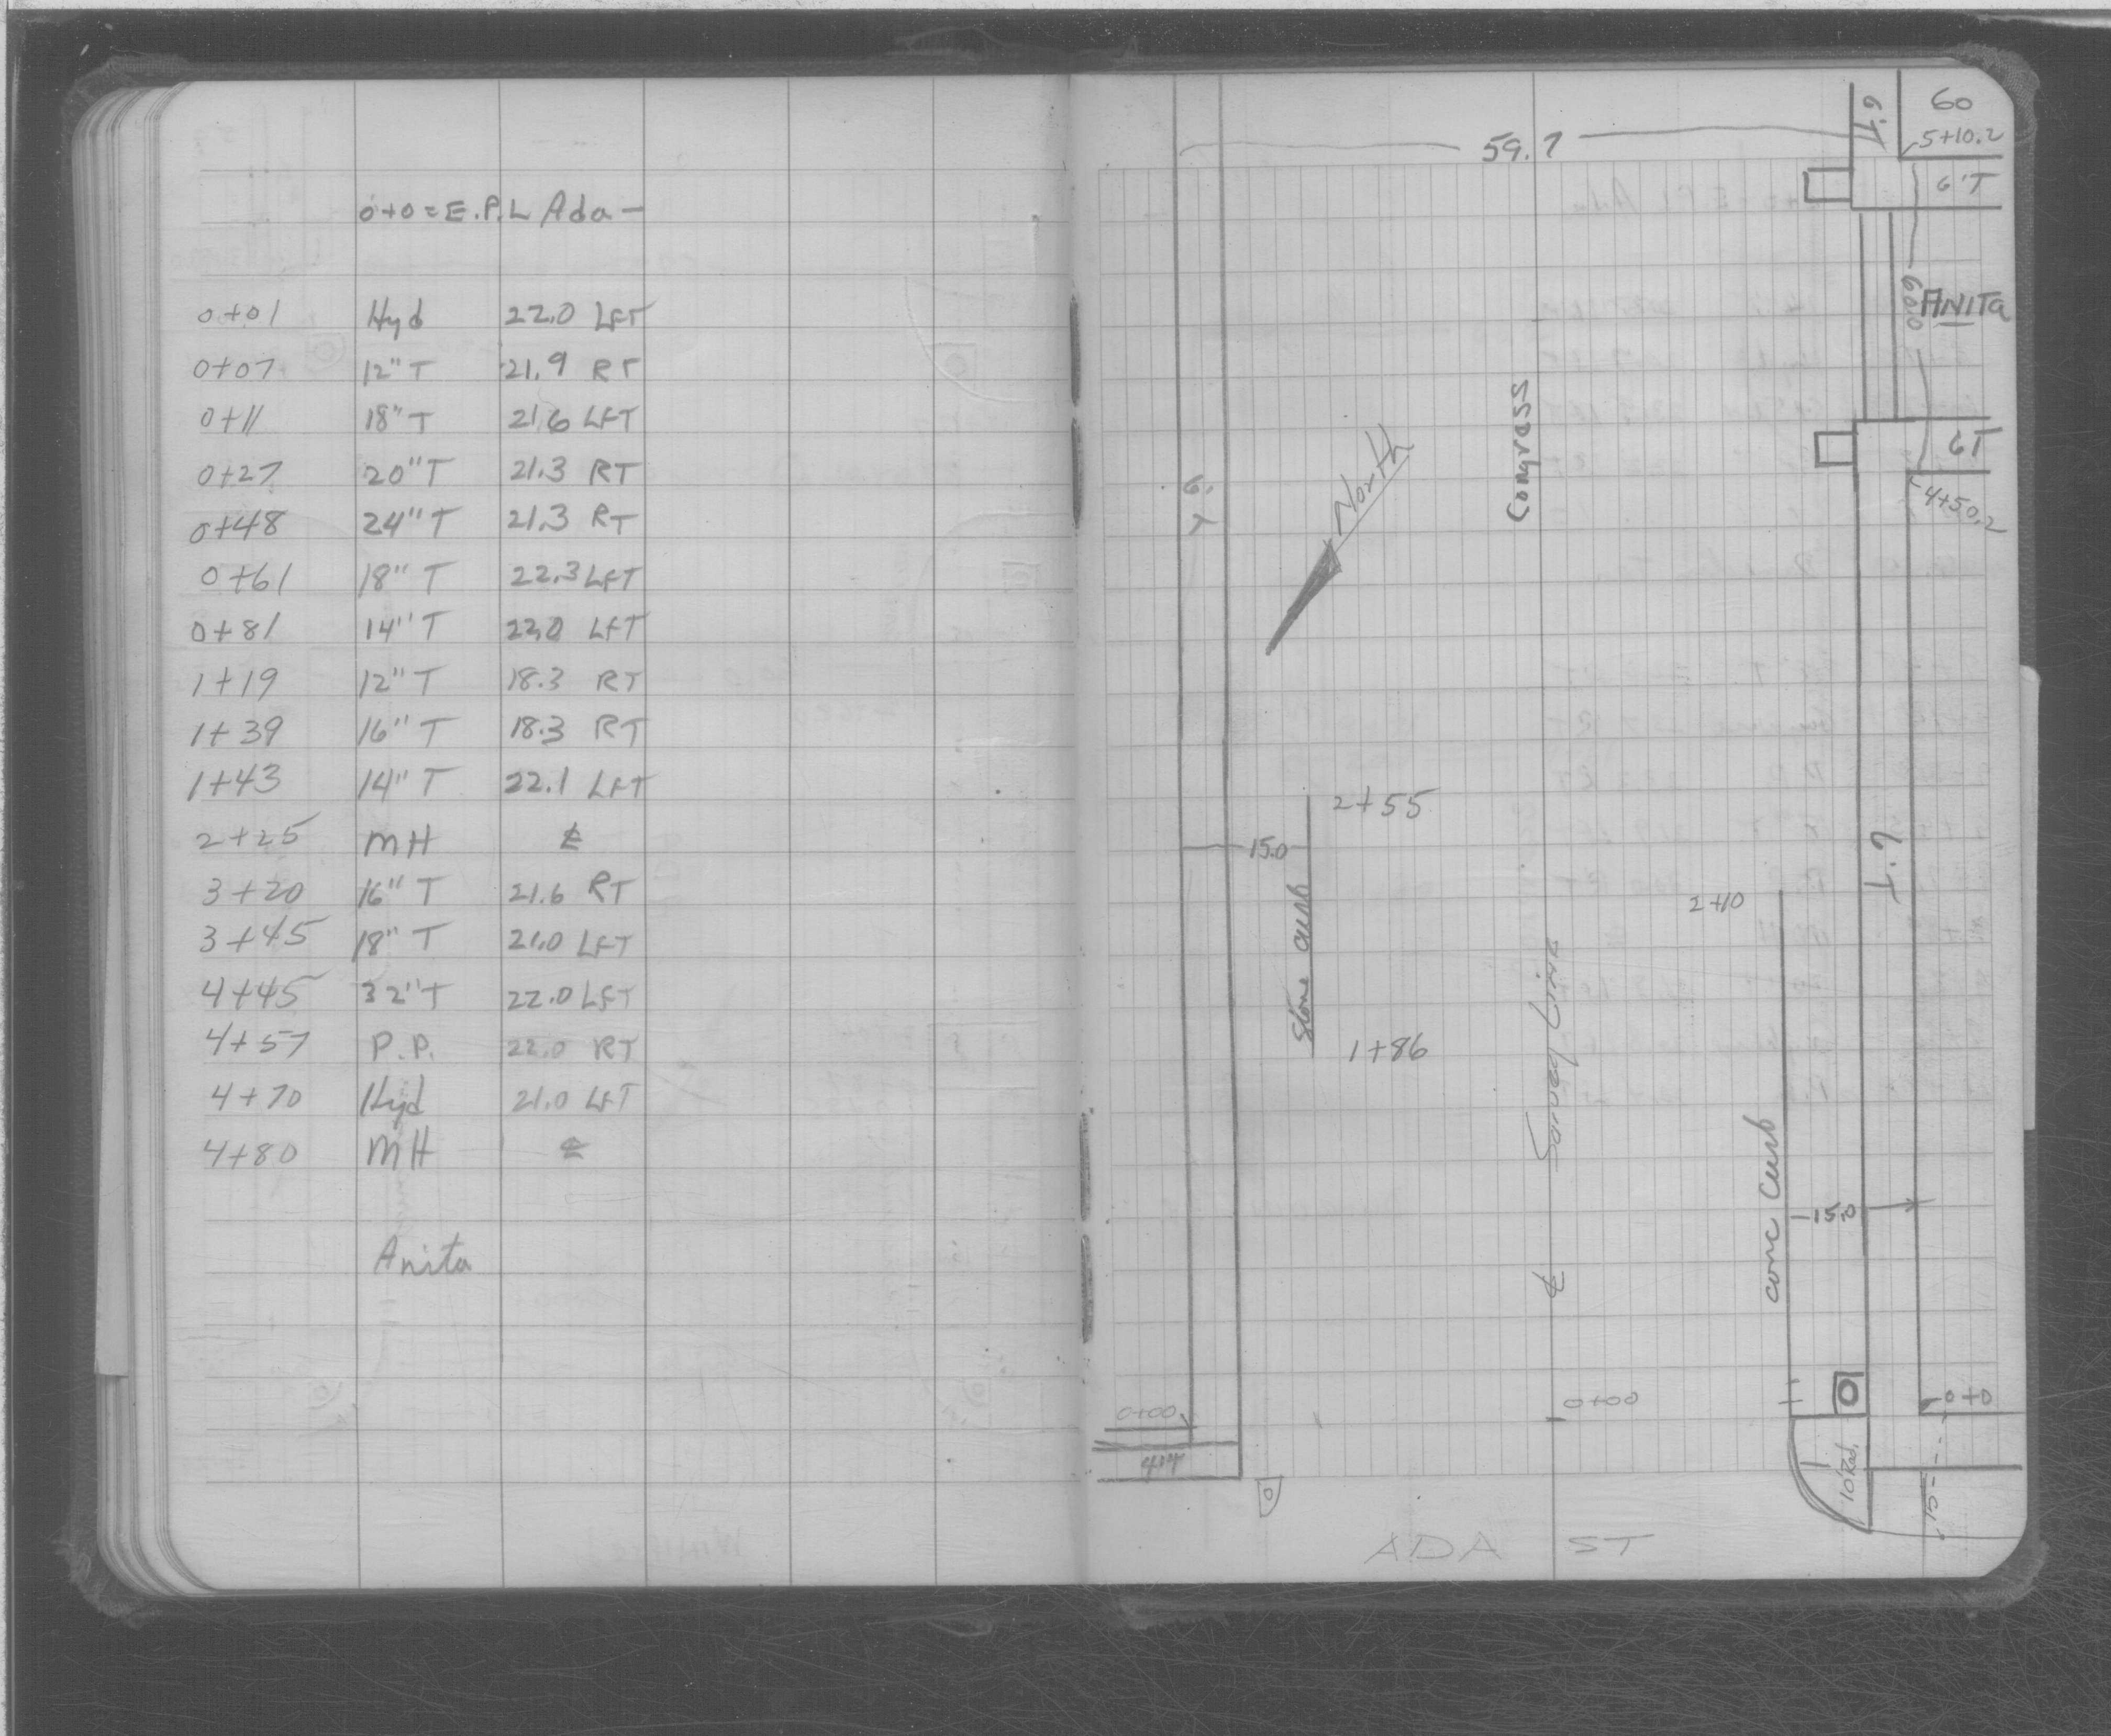 0+0 = E.P.L Ada -
0+01 Hyd 22.0 LFT
0+07 12" T 21.9 RT
0+11 18" T 21.6 LFT
0+27 20" T 21.3 RT
0+48 24" T 21.3 RT
0+61 18" T 22.3 LFT
0+81 14" T 22.0 LFT
1+19 12" T 18.3 RT
1+39 16" T 18.3 RT
1+43 14" T 22.1 LFT
2+25 MH ℄
3+20 16" T 21.6 RT
3+45 18" T 21.0 LFT
4+45 32" T 22.0 LFT
4+57 P.P. 22.0 RT
4+70 Hyd 21.0 LFT
4+80 MH ℄
Anita
59.7
6'T
60
5+10.2
6'T
60.0
ANITA
Congress
6T
4+50.2
North
6'T
2+55
15.0
stone curb
1+86
2+10
6'T
℄ Survey Line
conc curb
15.0
0+00
0+00
0+0
10'Rad.
15
ADA ST